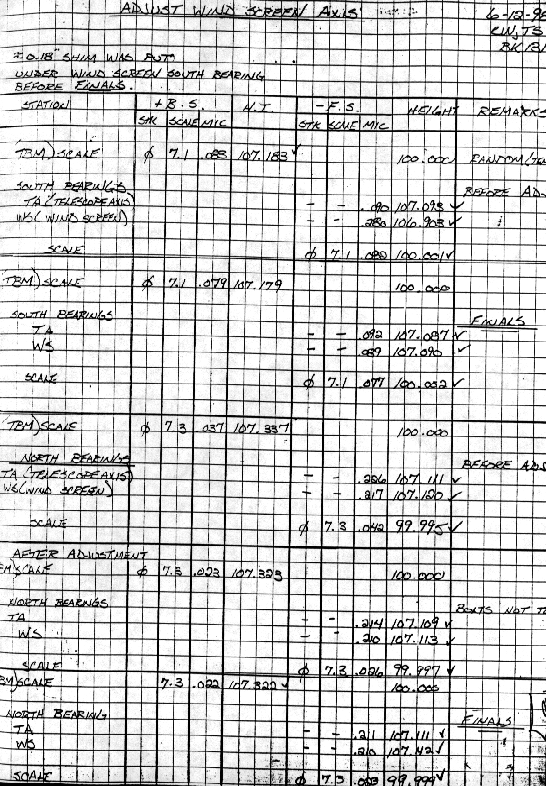 ADJUST WIND SCREEN AXIS
6-12-9
KW, TS
BK, B
≈ 0.18" SHIM WAS PUT
UNDER WIND SCREEN SOUTH BEARING
BEFORE FINALS.
STATION + B.S. H.I. - F.S. HEIGHT REMARKS
STK SCALE MIC STK SCALE MIC
TBM) SCALE ϕ 7.1 .083 107.183 ✓ 100.000 RANDOM
SOUTH BEARINGS BEFORE AD
TA (TELESCOPE AXIS) - - .090 107.093 ✓
WS (WIND SCREEN) - - .280 106.903 ✓
SCALE ϕ 7.1 .082 100.001 ✓
TBM) SCALE ϕ 7.1 .079 107.179 100.000
SOUTH BEARINGS FINALS
TA - - .092 107.087 ✓
WS - - .089 107.090 ✓
SCALE ϕ 7.1 .077 100.002 ✓
TBM) SCALE ϕ 7.3 .037 107.337 100.000
NORTH BEARINGS BEFORE ADJ
TA (TELESCOPE AXIS) - - .226 107.111 ✓
WS (WIND SCREEN) - - .217 107.120 ✓
SCALE ϕ 7.3 .042 99.995 ✓
AFTER ADJUSTMENT
BM) SCALE ϕ 7.3 .023 107.323 100.000
NORTH BEARINGS BOLTS NOT T
TA - - .214 107.109 ✓
WS - - .210 107.113 ✓
SCALE ϕ 7.3 .026 99.997 ✓
BM) SCALE 7.3 .022 107.322 ✓ 100.000
NORTH BEARING FINALS
TA - - .211 107.111 ✓
WS - - .210 107.112 ✓
SCALE ϕ 7.3 .023 99.999 ✓